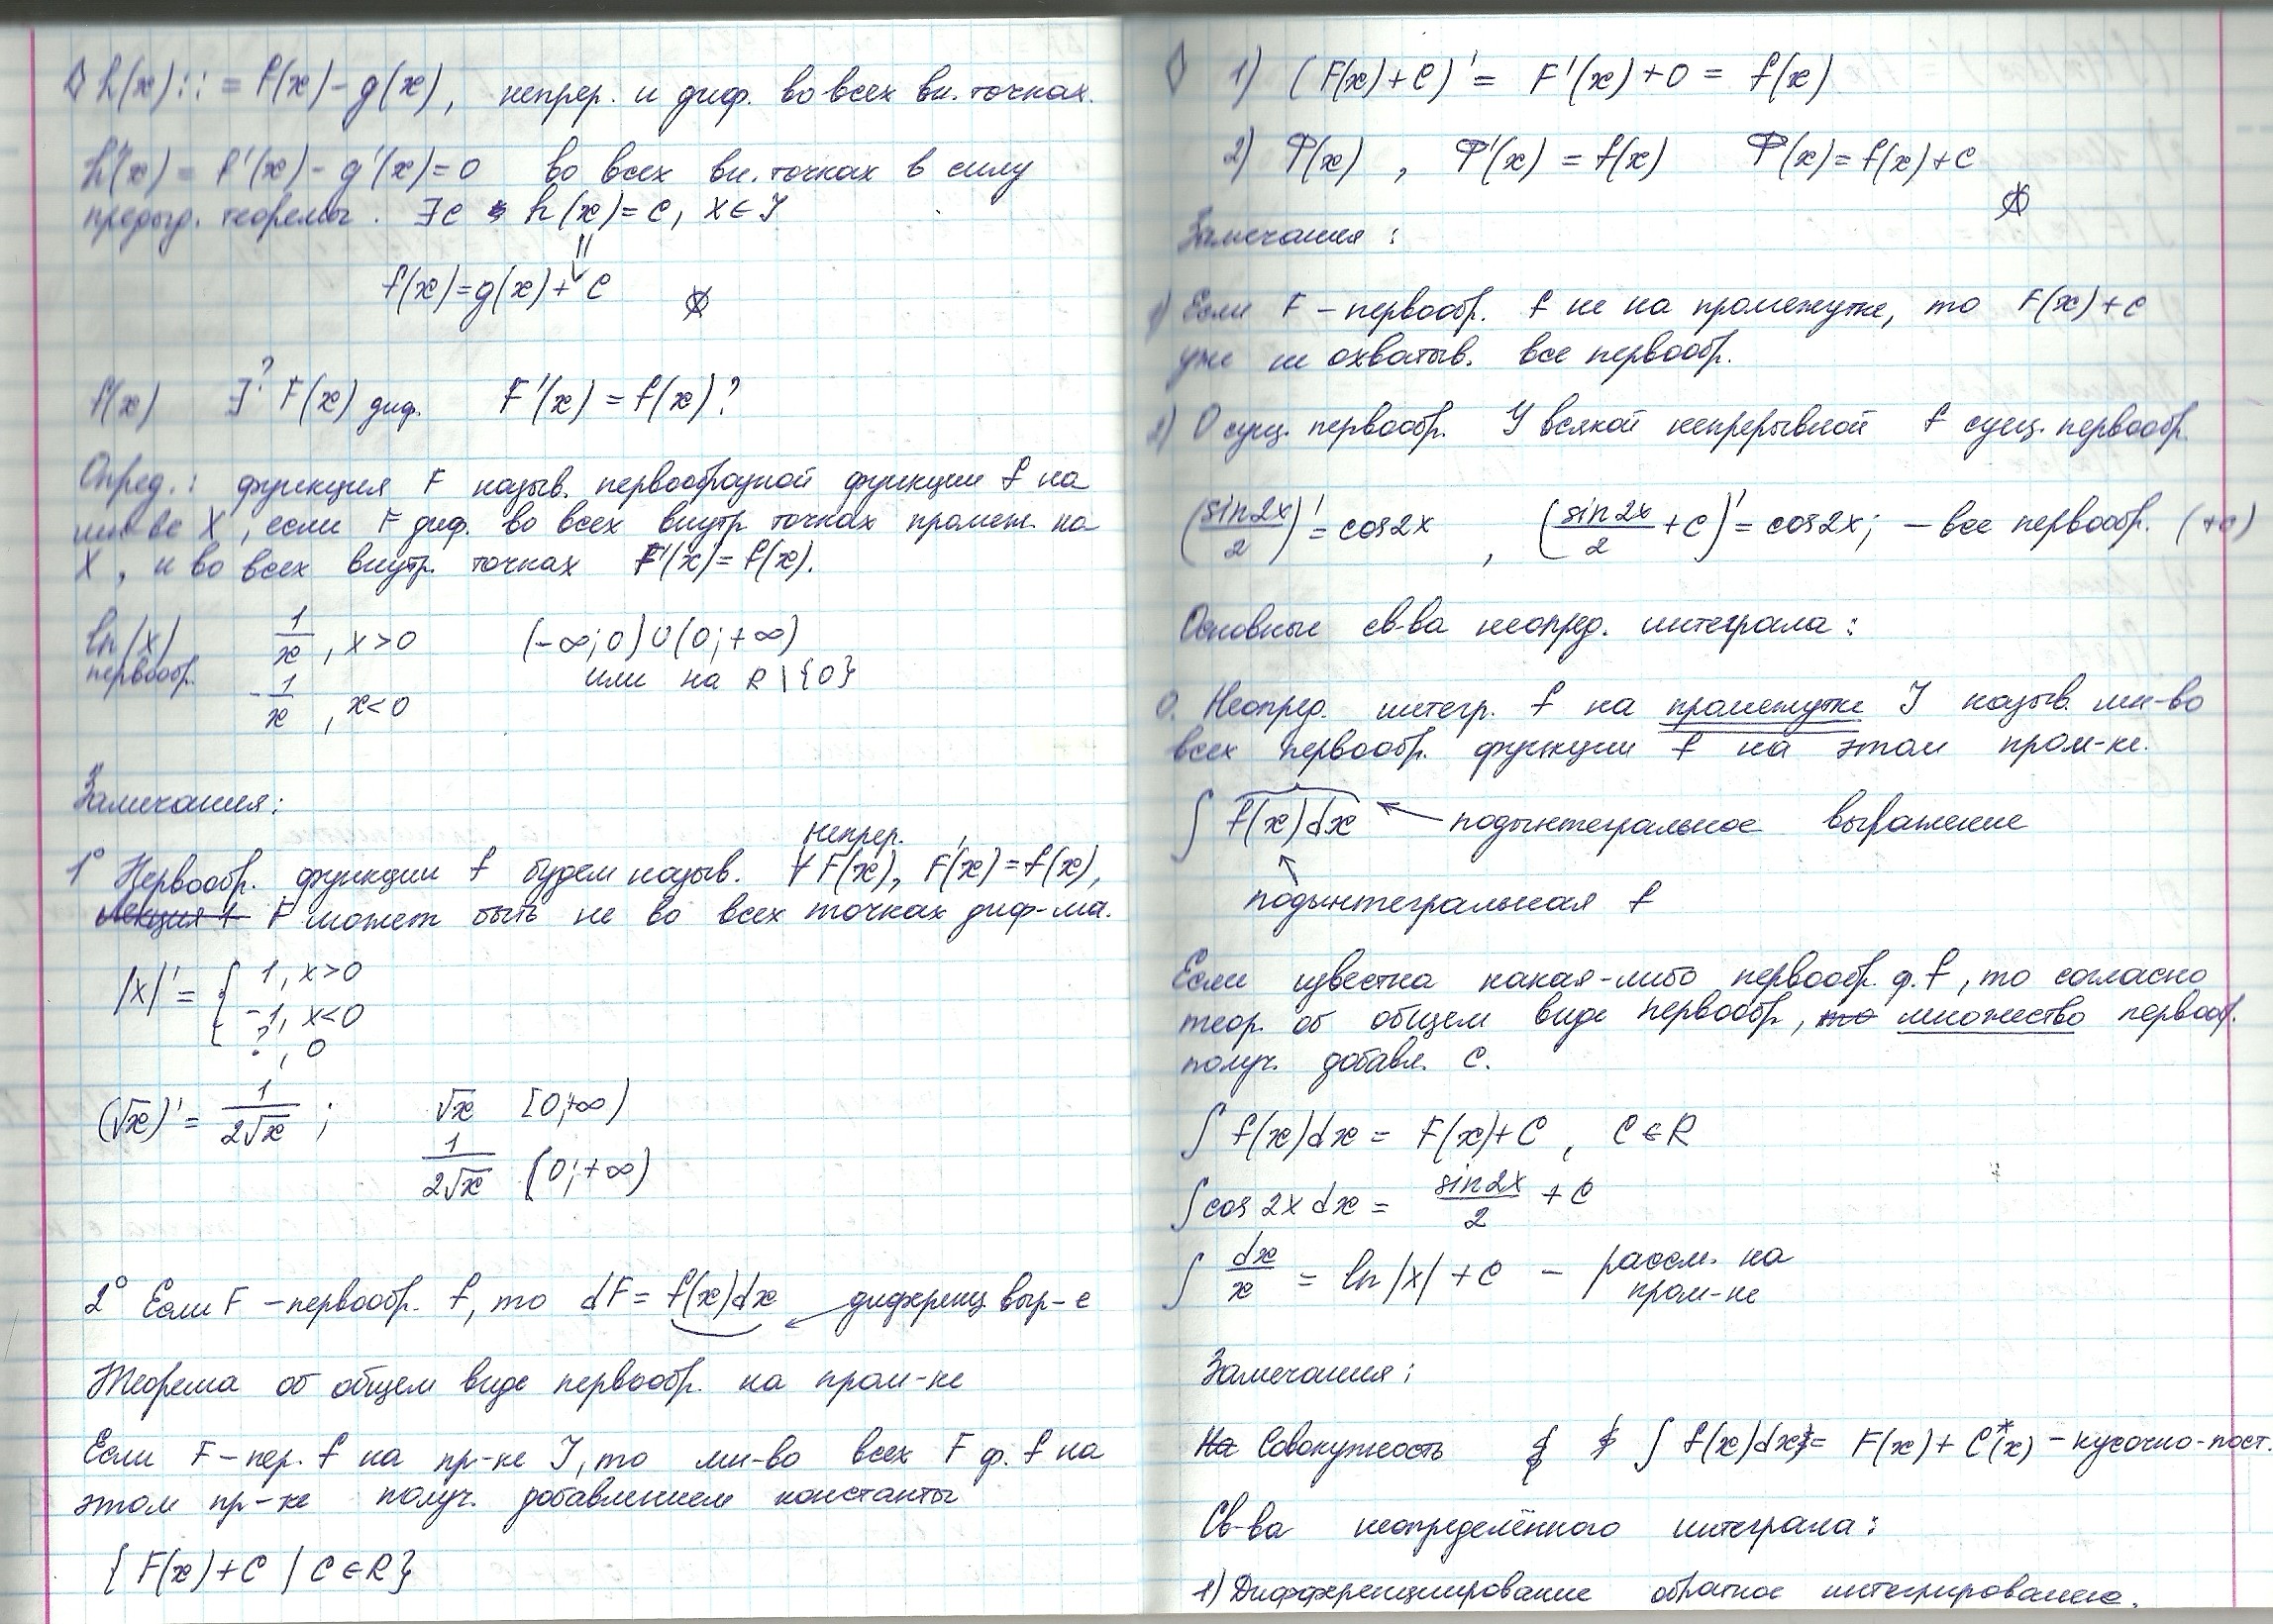 h(x) := f(x) - g(x), непрер. и диф. во всех вн. точках.
h'(x) = f'(x) - g'(x) = 0 во всех вн. точках в силу
предыд. теоремы. ∃C h(x) = C, x ∈ J
⇓
f(x) = g(x) + C
f(x) ∃? F(x) диф. F'(x) = f(x)?
Опред.: функция F назыв. первообразной функции f на
мн-ве X, если F диф. во всех внутр. точках промеж. на
X, и во всех внутр. точках F'(x) = f(x).
ln|x| 1/x, x>0 (-∞;0)∪(0;+∞)
первообр. -1/x, x<0 или на R\{0}
Замечания:
непрер.
1° Первообр. функции f будем назыв. ∀ F(x), F'(x) = f(x),
Лекция 1 F может быть не во всех точках диф-ма.
|x|' = { 1, x>0
-1, x<0
?, 0
(√x)' = 1/(2√x); √x [0;+∞)
1/(2√x) (0;+∞)
2° Если F - первообр. f, то dF = f(x)dx ← диференц выр-е
Теорема об общем виде первообр. на пром-ке
Если F - пер. f на пр-ке J, то мн-во всех F ф. f на
этом пр-ке получ. добавлением константы
{F(x)+C | C∈R}
1) (F(x)+C)' = F'(x)+0 = f(x)
2) Φ(x), Φ'(x) = f(x) Φ(x) = f(x)+C
Замечания:
1) Если F - первообр. f не на промежутке, то F(x)+C
уже не охватыв. все первообр.
2) О сущ. первообр. У всякой непрерывной f сущ. первообр.
(sin2x/2)' = cos2x, (sin2x/2 + C)' = cos2x; - все первообр. (+c)
Основные св-ва неопред. интеграла:
0. Неопред. интегр. f на промежутке J назыв. мн-во
всех первообр. функции f на этом пром-ке.
∫ f(x)dx ← подынтегральное выражение
подынтегральная f
Если известна какая-либо первообр. ф. f, то согласно
теор. об общем виде первообр, то множество первооб.
получ. добавл. C.
∫ f(x)dx = F(x)+C, C∈R
∫ cos 2x dx = sin2x/2 + C
∫ dx/x = ln|x| + C - рассм. на
пром-ке
Замечания:
На Совокупность ∫ f(x)dx = F(x) + C*(x) - кусочно-пост.
Св-ва неопределённого интеграла:
1) Дифференцирование обратное интегрированию.